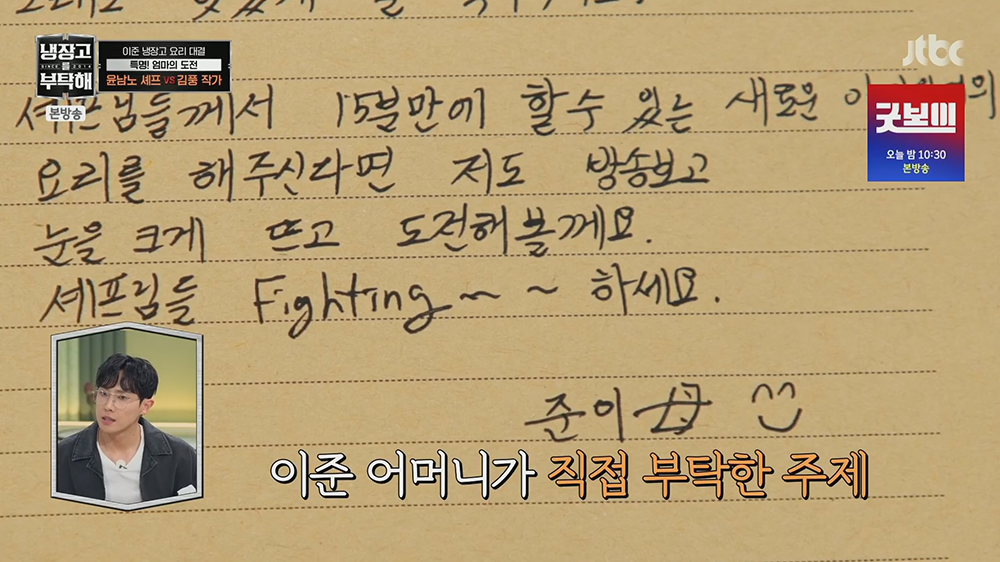 냉장고를
SINCE 2014
부탁해
본방송
이준 냉장고 요리 대결
특명! 엄마의 도전
윤남노 셰프 VS 김풍 작가
jtbc
굿보이
오늘 밤 10:30
본방송
셰프님들께서 15분만에 할수 있는 새로운
요리를 해주신다면 저도 방송보고
눈을 크게 뜨고 도전해볼께요.
셰프님들 Fighting~ ~ 하세요.
준이 母
이준 어머니가 직접 부탁한 주제